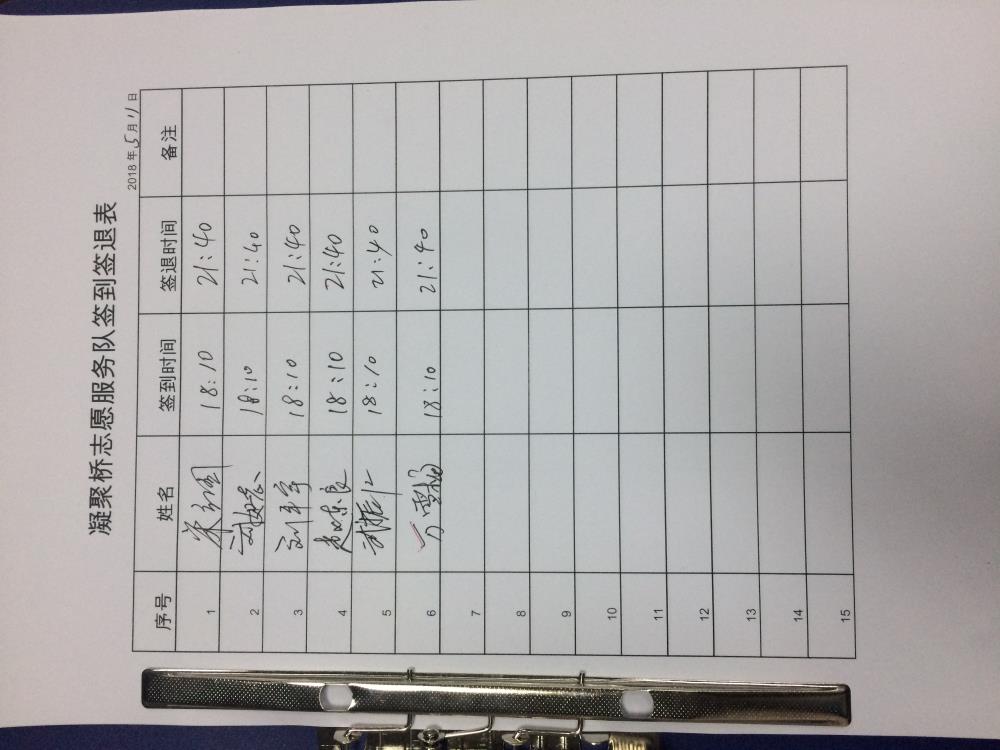 凝聚桥志愿服务队签到签退表
2018年5月11日
序号 姓名 签到时间 签退时间 备注
1 18:10 21:40
2 18:10 21:40
3 刘平宇 18:10 21:40
4 18:10 21:40
5 18:10 21:40
6 18:10 21:40
7
8
9
10
11
12
13
14
15